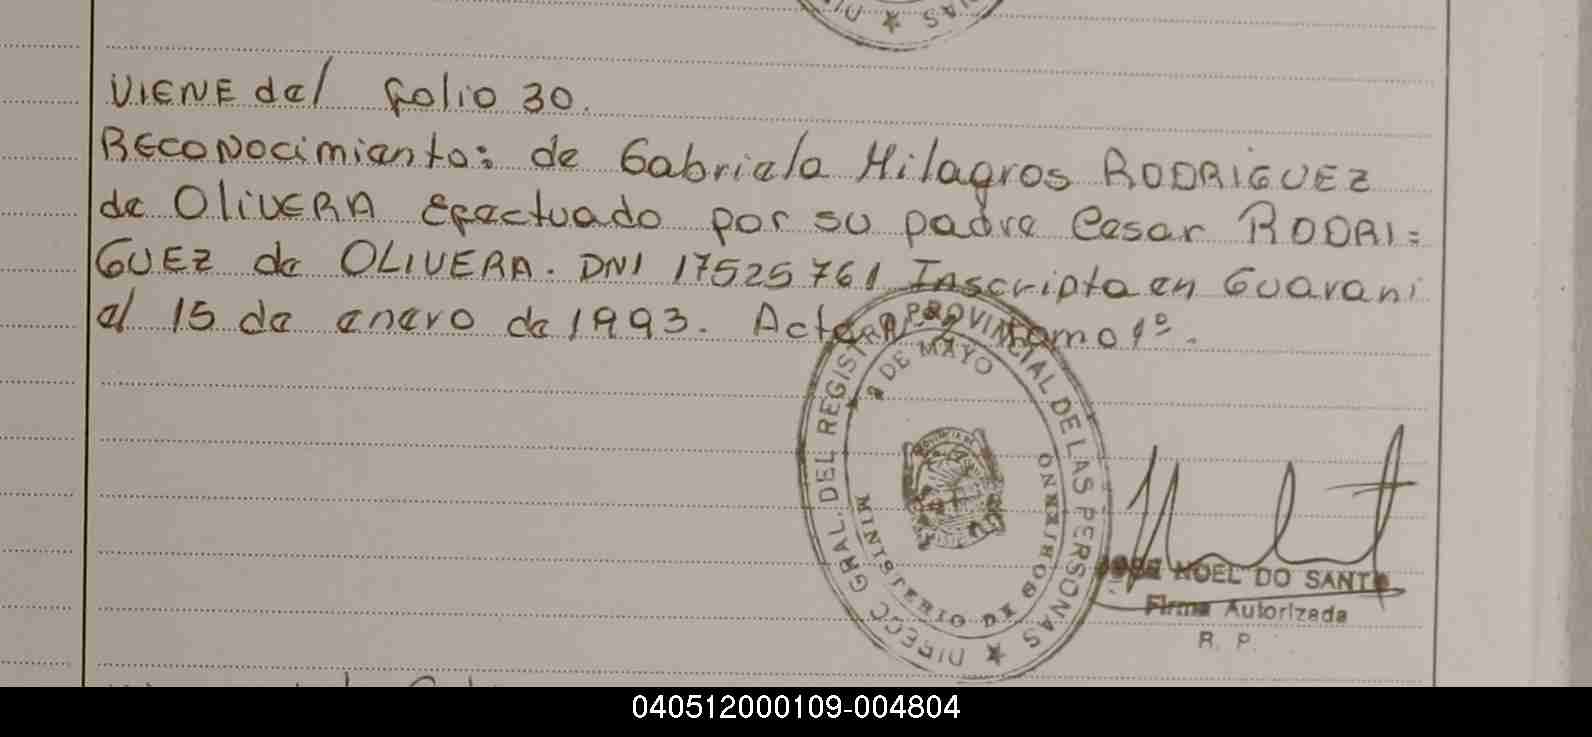 VIENE del folio 30.
Reconocimiento: de Gabriela Milagros RODRIGUEZ
de OliVERA efectuado por su padre Cesar RODRI=
GUEZ de OLIVERA. DNI 17525761 Inscripta en Guarani
el 15 de enero de 1993. Acta Tomo 1º.
DIRECC. GRAL. DEL REGISTRO PROVINCIAL DE LAS PERSONAS
MINISTERIO DE GOBIERNO
DE MAYO
NOEL DO SANTO
Firma Autorizada
R. P.
040512000109-004804